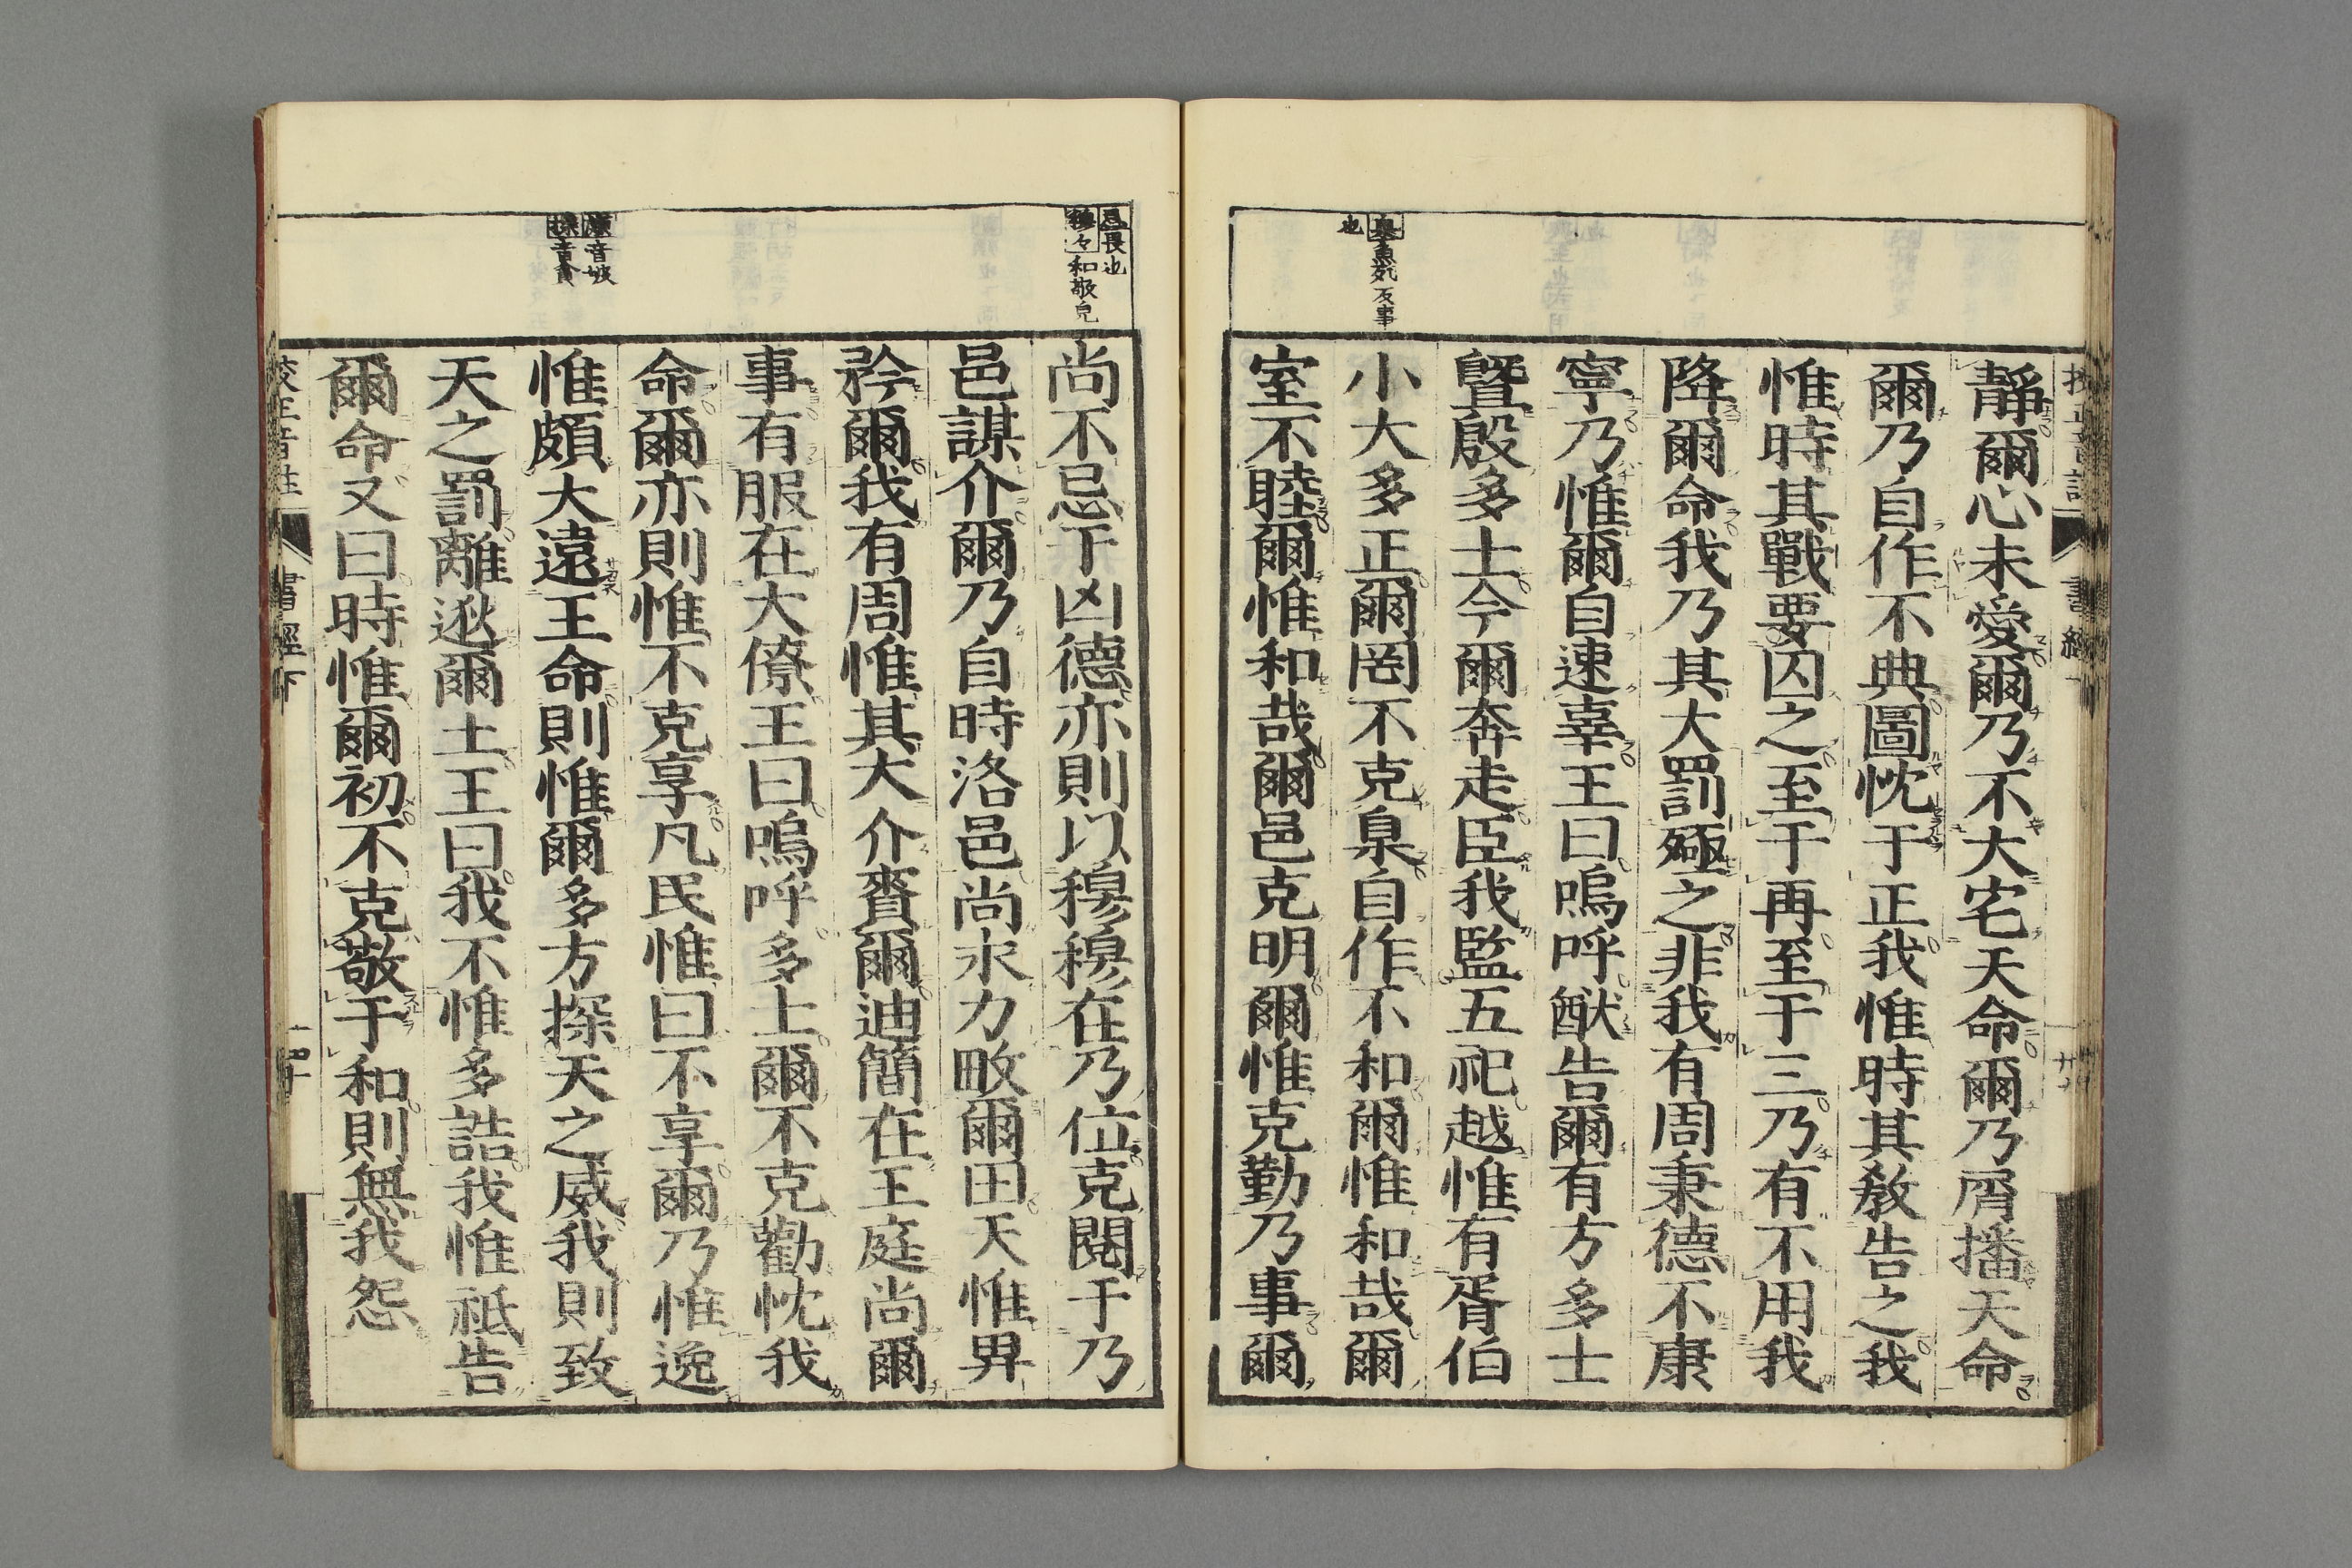 靜爾心未愛爾乃不大宅天命爾乃屑播天命
爾乃自作不典圖忱于正我惟時其教告之我
惟時其戰要囚之至于再至于三乃有不用我
降爾命我乃其大罰殛之非我有周秉德不康
寧乃惟爾自速辜王曰嗚呼猷告爾有方多士
曁殷多士今爾奔走臣我監五祀越惟有胥伯
小大多正爾罔不克臬自作不和爾惟和哉爾
室不睦爾惟和哉爾邑克明爾惟克勤乃事爾
臬魚列反事
也
書經
尚不忌于凶德亦則以穆穆在乃位克閱于乃
邑謀介爾乃自時洛邑尚永力畋爾田天惟畀
矜爾我有周惟其大介賚爾迪簡在王庭尚爾
事有服在大僚王曰嗚呼多士爾不克勸忱我
命爾亦則惟不克享凡民惟曰不享爾乃惟逸
惟頗大遠王命則惟爾多方探天之威我則致
天之罰離逖爾土王曰我不惟多誥我惟祗告
爾命又曰時惟爾初不克敬于和則無我怨
忌畏也
穆々和敬皃
音坡
探音貪
校正音註 書經下